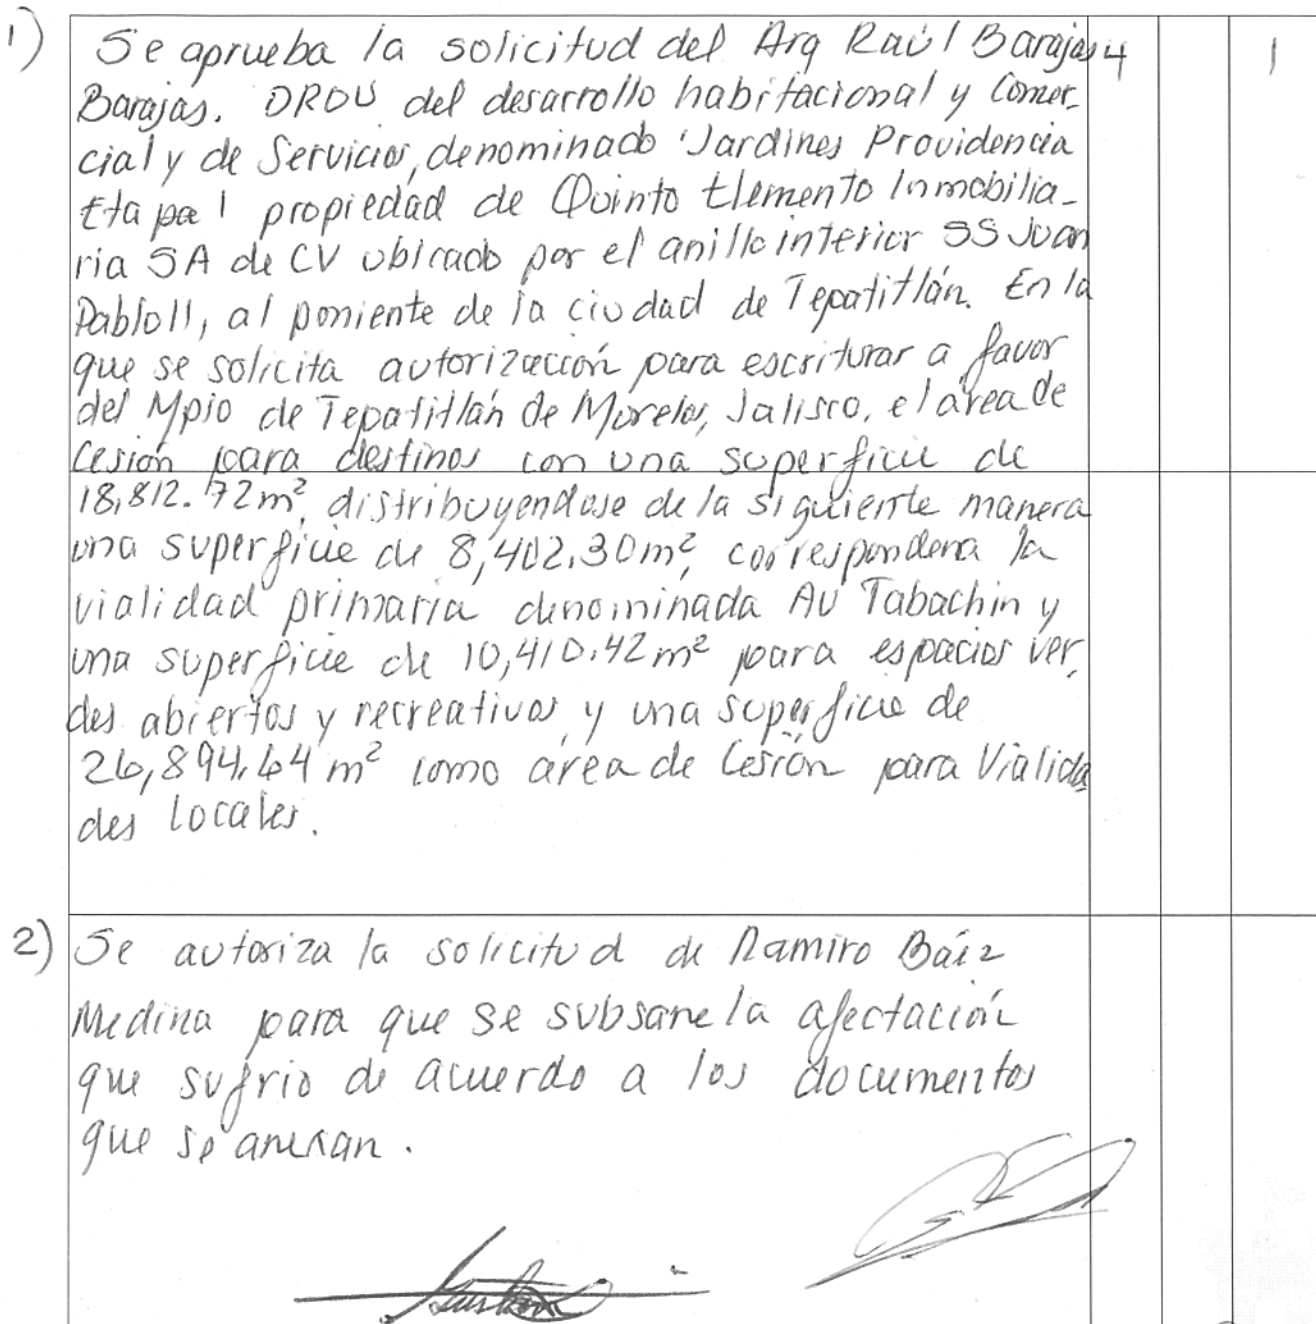 1) Se aprueba la solicitud del Arq Raúl Barajas 4 1
Barajas. DRDU del desarrollo habitacional y Comer-
cial y de Servicios, denominado "Jardines Providencia
Etapa 1 propiedad de Quinto Elemento Inmobilia-
ria SA de CV ubicado por el anillo interior SS Juan
Pablo II, al poniente de la ciudad de Tepatitlán. En la
que se solicita autorización para escriturar a favor
del Mpio de Tepatitlán de Morelos, Jalisco, el área de
Cesión para destinos con una superficie de
18,812.72 m², distribuyendose de la siguiente manera
una superficie de 8,402.30 m², correspondena la
vialidad primaria denominada Av Tabachin y
una superficie de 10,410.42 m² para espacios ver-
des abiertos y recreativos y una superficie de
26,894.64 m² como área de Cesión para Vialida
des locales.
2) Se autoriza la solicitud de Ramiro Báiz
Medina para que se subsane la afectación
que sufrio de acuerdo a los documentos
que se anexan.